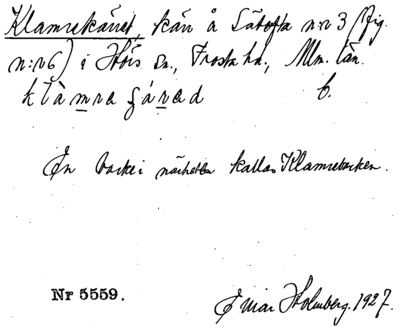 Klamrekärret, kärr å Sätofta n:r 3 (Fig.
n:r 6) i Hörs sn., Frosta hd., Mlm. län.
b.
En backe i närheten kallas Klamrebacken.
Nr 5559.
Einar Holmberg. 1927.